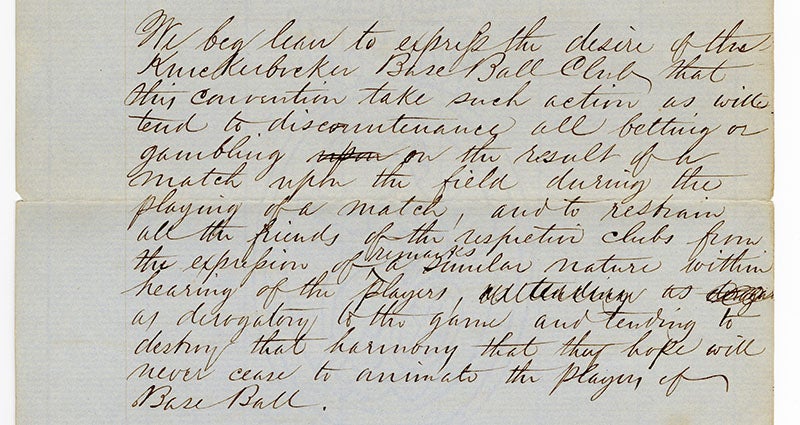 We beg leave to express the desire of the
Knickerbocker Base Ball Club that
this convention take such action as will
tend to discountenance all betting or
gambling upon on the result of a
match upon the field during the
playing of a match, and to restrain
all the friends of the respective clubs from
the expression of remarks a similar nature within
hearing of the players, as tending as
as derogatory to the game and tending to
destroy that harmony that they hope will
never cease to animate the players of
Base Ball.